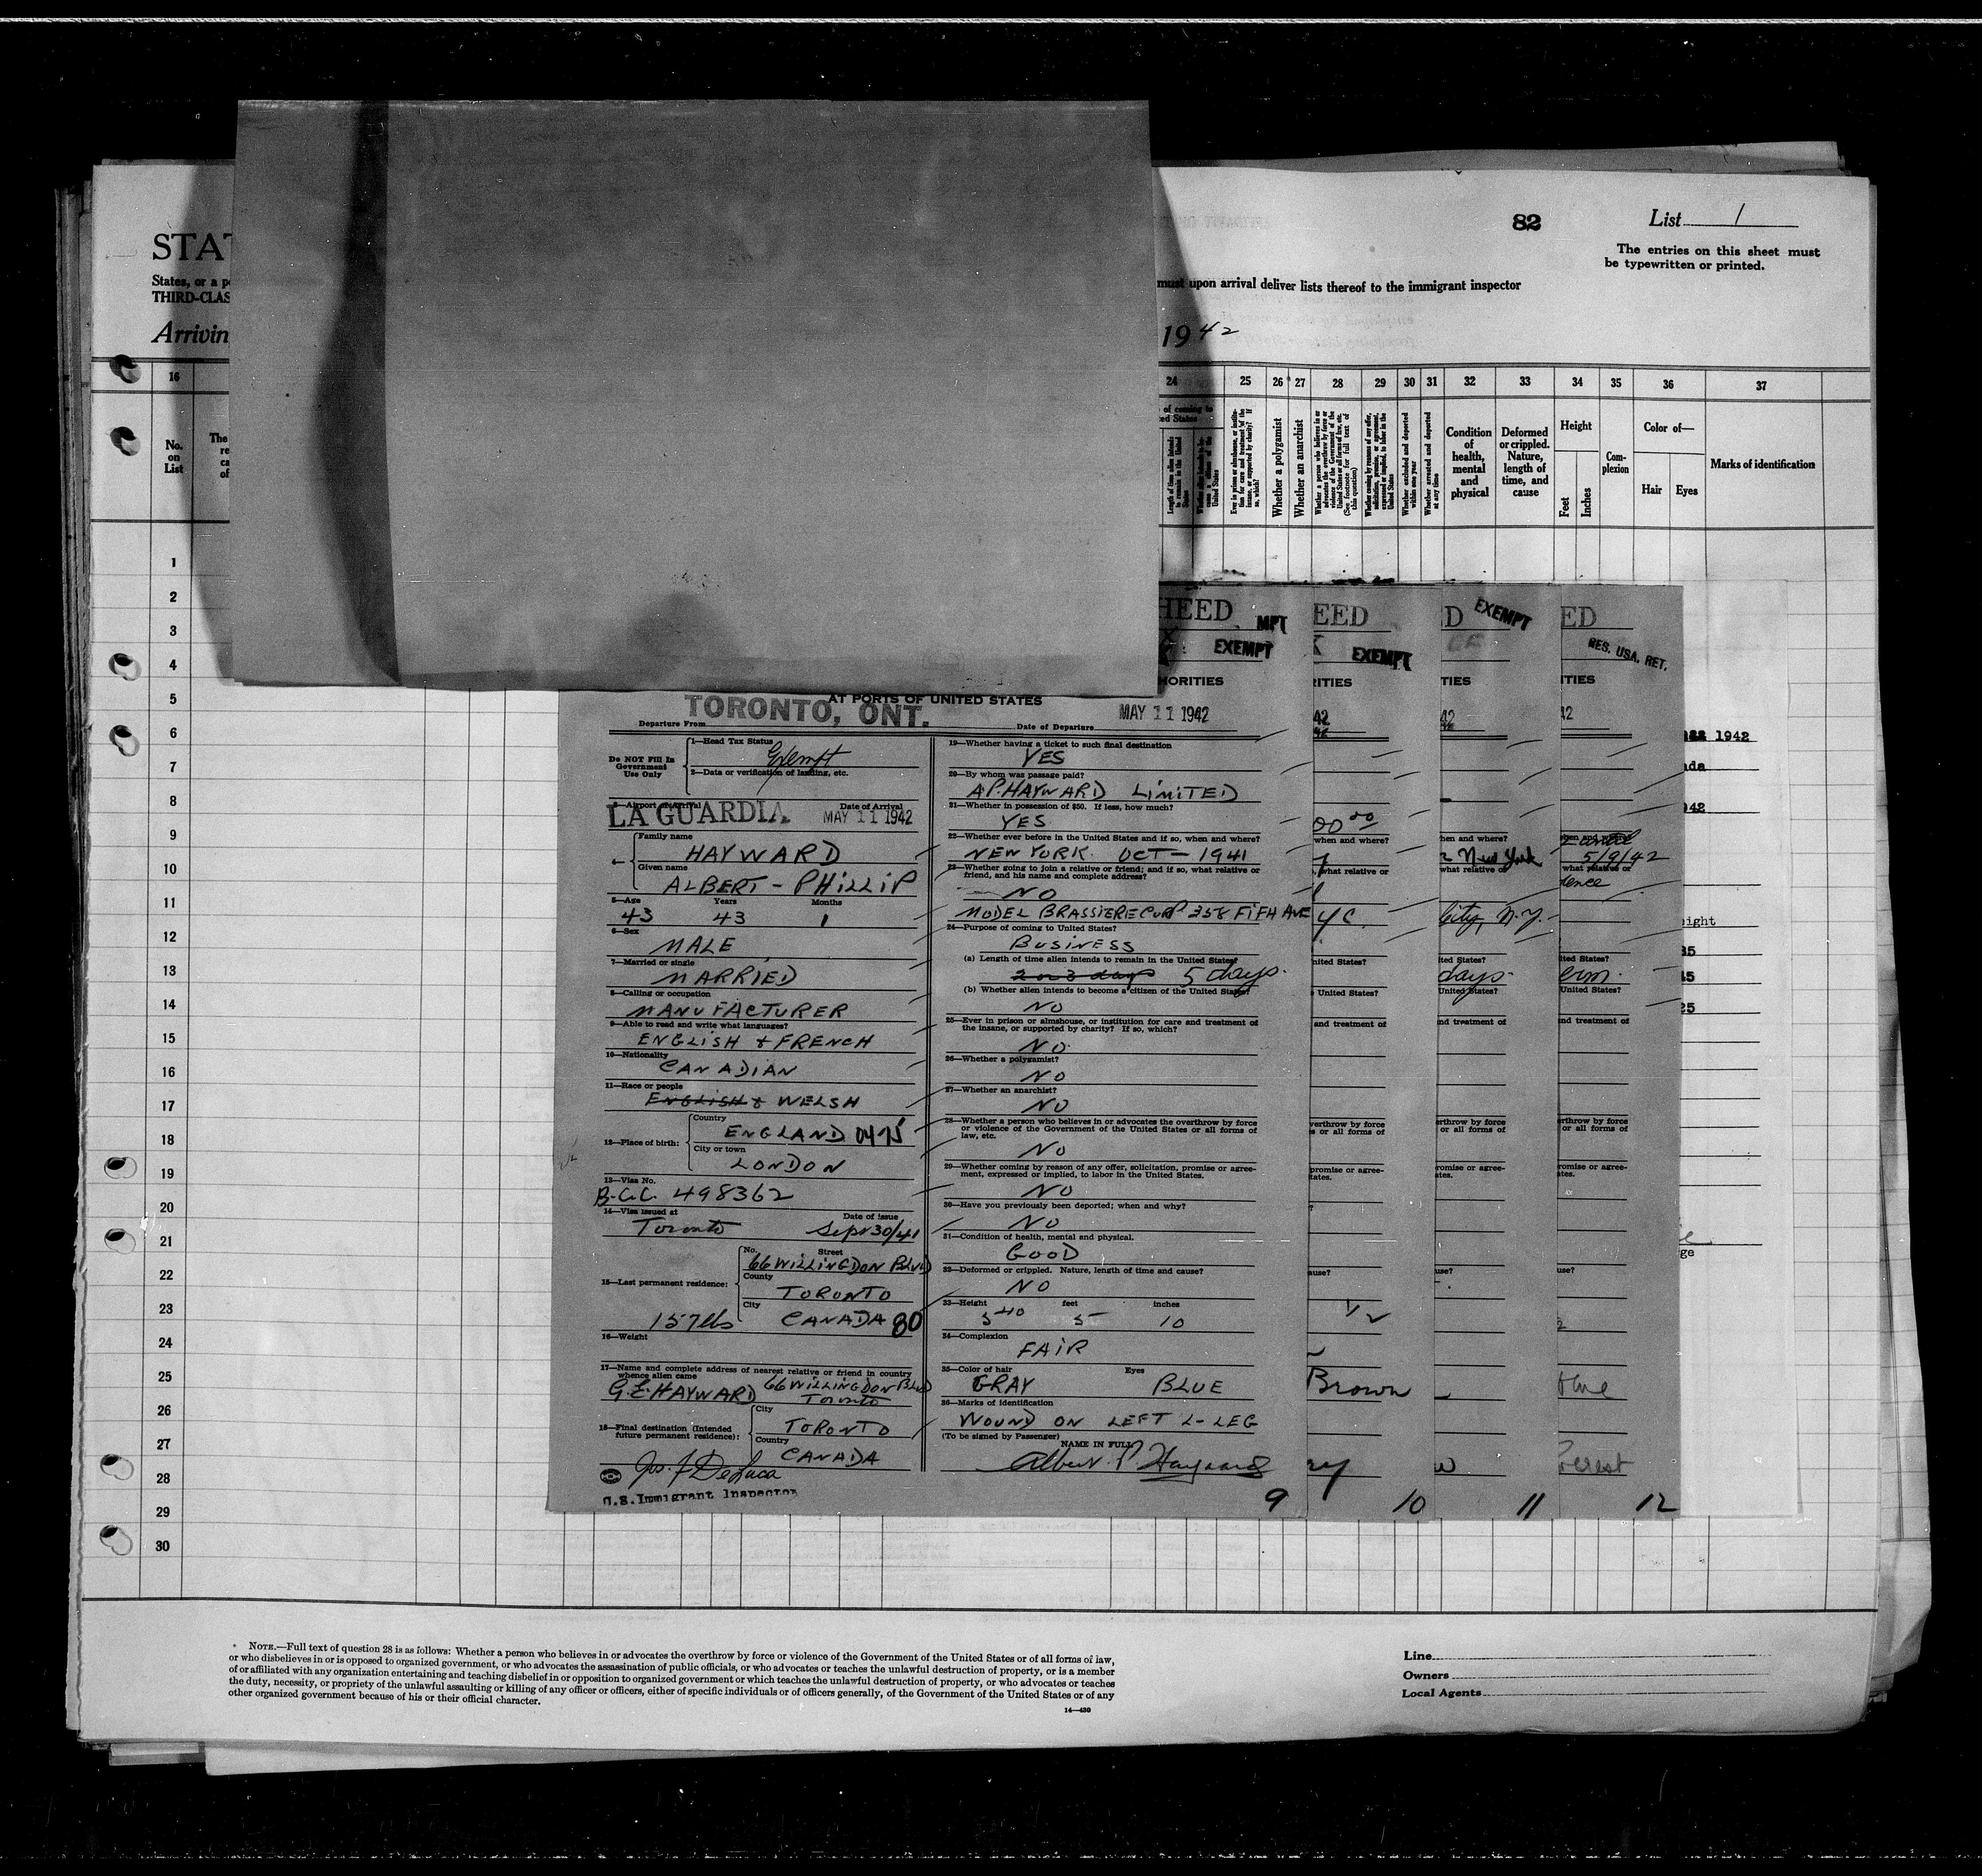 82
List 1
The entries on this sheet must
be typewritten or printed.
STA
States, or a p
THIRD-CLAS
must upon arrival deliver lists thereof to the immigrant inspector
Arrivin
1942
16
24
25
26
27
28
29
30
31
32
33
34
35
36
37
No.
on
List
of coming to
ed States
Length of time alien intends
to remain in the United
States
Whether a polygamist
Whether an anarchist
Whether excluded and deported
within one year
Whether arrested and deported
at any time
Condition
of
health,
mental
and
physical
Deformed
or crippled.
Nature,
length of
time, and
cause
Height
Feet
Inches
Com-
plexion
Color of—
Hair
Eyes
Marks of identification
1
2
3
4
5
6
7
8
9
10
11
12
13
14
15
16
17
18
19
20
21
22
23
24
25
26
27
28
29
30
HEED
MPT
EXEMPT
EED
EXEMPT
D
EXEMPT
ED
RES. USA. RET.
HORITIES
RITIES
TIES
TIES
AT PORTS OF UNITED STATES
Departure From TORONTO, ONT.
Date of Departure MAY 11 1942
Do NOT Fill In
Government
Use Only
1—Head Tax Status
Exempt
2—Data or verification of landing, etc.
3—Airport of Arrival
Date of Arrival
LA GUARDIA
MAY 11 1942
4—
Family name
HAYWARD
Given name
ALBERT - PHILLIP
5—Age
Years
Months
43
43
1
6—Sex
MALE
7—Married or single
MARRIED
8—Calling or occupation
MANUFACTURER
9—Able to read and write what languages?
ENGLISH & FRENCH
10—Nationality
CANADIAN
11—Race or people
ENGLISH & WELSH
12—Place of birth:
Country
ENGLAND 0475
City or town
LONDON
13—Visa No.
B.C.C. 498362
14—Visa issued at
Date of issue
Toronto
Sept 30/41
15—Last permanent residence:
No.
Street
66 WILLINGDON BLVD
County
TORONTO
City
CANADA 80
157 lbs
16—Weight
17—Name and complete address of nearest relative or friend in country
whence alien came
G.E. HAYWARD 66 WILLINGDON BLVD
Toronto
18—Final destination (Intended
future permanent residence):
City
TORONTO
Country
CANADA
Jos. J DeLuca
U.S. Immigrant Inspector
19—Whether having a ticket to such final destination
YES
20—By whom was passage paid?
A.P. HAYWARD LIMITED
21—Whether in possession of $50. If less, how much?
YES
22—Whether ever before in the United States and if so, when and where?
NEW YORK. OCT - 1941
23—Whether going to join a relative or friend; and if so, what relative or
friend, and his name and complete address?
NO
MODEL BRASSIERE CORP 358 FIFH AVE
24—Purpose of coming to United States?
BUSINESS
(a) Length of time alien intends to remain in the United States?
2 or 3 days 5 days.
(b) Whether alien intends to become a citizen of the United States?
NO
25—Ever in prison or almshouse, or institution for care and treatment of
the insane, or supported by charity? If so, which?
NO
26—Whether a polygamist?
NO
27—Whether an anarchist?
NO
28—Whether a person who believes in or advocates the overthrow by force
or violence of the Government of the United States or all forms of
law, etc.
NO
29—Whether coming by reason of any offer, solicitation, promise or agree-
ment, expressed or implied, to labor in the United States.
NO
30—Have you previously been deported; when and why?
NO
31—Condition of health, mental and physical.
GOOD
32—Deformed or crippled. Nature, length of time and cause?
NO
33—Height
feet
inches
5
10
34—Complexion
FAIR
35—Color of hair
Eyes
GRAY
BLUE
36—Marks of identification
WOUND ON LEFT L-LEG
(To be signed by Passenger)
NAME IN FULL
Albert. P. Hayward
9
10
11
12
New York
5/9/42
City, N.Y.
days
Brown
1942
* NOTE.—Full text of question 28 is as follows: Whether a person who believes in or advocates the overthrow by force or violence of the Government of the United States or of all forms of law,
or who disbelieves in or is opposed to organized government, or who advocates the assassination of public officials, or who advocates or teaches the unlawful destruction of property, or is a member
of or affiliated with any organization entertaining and teaching disbelief in or opposition to organized government or which teaches the unlawful destruction of property, or who advocates or teaches
the duty, necessity, or propriety of the unlawful assaulting or killing of any officer or officers, either of specific individuals or of officers generally, of the Government of the United States or of any
other organized government because of his or their official character.
14—430
Line
Owners
Local Agents